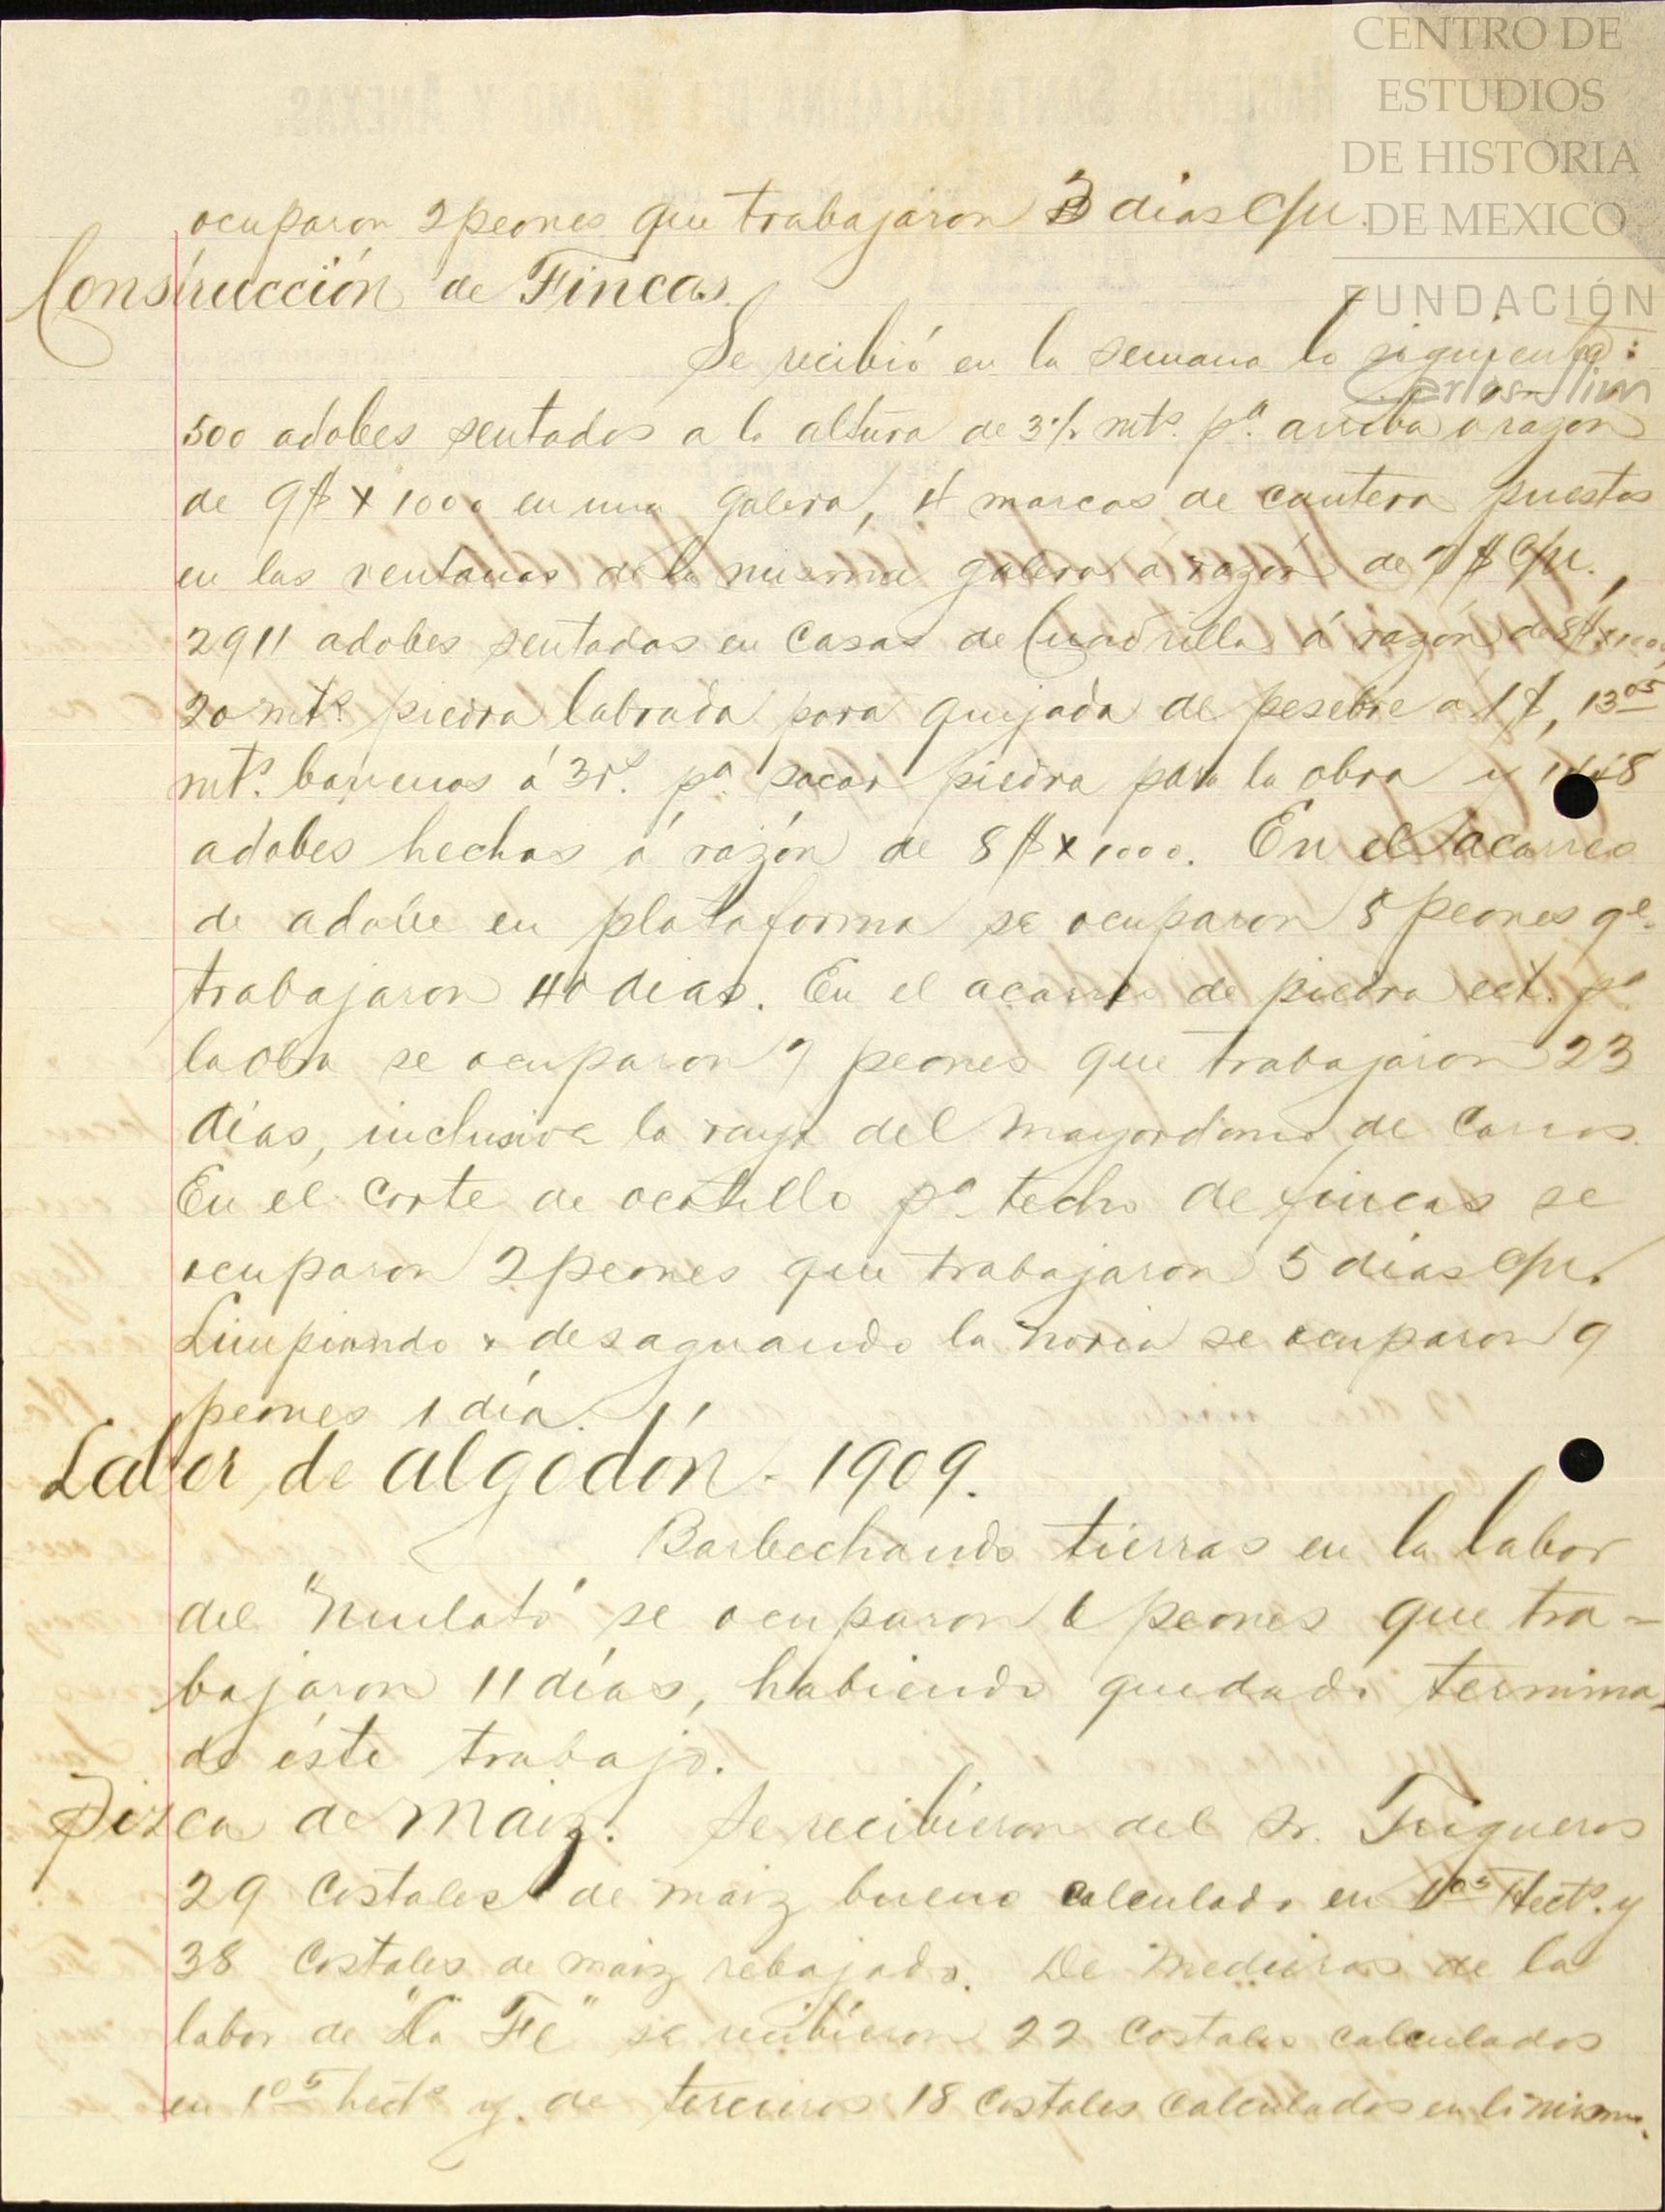 CENTRO DE
ESTUDIOS
DE HISTORIA
DE MEXICO
FUNDACIÓN
Carlos Slim
ocuparon 2 peones que trabajaron 3 dias c/u.
Construcción de Fincas.
Se recibió en la semana lo siguiente:
500 adobes sentados a la altura de 3½ mts. pa. arriba a razon
de 9$ x 1000 en una galera, 4 marcos de cantera puestos
en las ventanas de la misma galera á razón de 7$ c/u.,
2911 adobes sentados en Casas de Cuadrilla á razón de 8$ x 1000,
20 mts. piedra labrada para quijada de pesebre a 1$, 13 05
mts. barrenos á 3rs. pa. sacar piedra para la obra y
adobes hechos á razón de 8$ x 1000. En el acarreo
de adobe en plataforma se ocuparon 8 peones qe.
trabajaron 40 dias. En el acarreo de piedra ect. pa.
la obra se ocuparon 7 peones que trabajaron 23
dias, inclusive la raya del mayordomo de Carros.
En el corte de ocotillo pa. techo de fincas se
ocuparon 2 peones que trabajaron 5 dias c/u.
Limpiando y desaguando la noria se ocuparon 9
peones 1 día.
Labor de algodón - 1909.
Barbechando tierras en la labor
del "Mulato" se ocuparon 6 peones que tra-
bajaron 11 días, habiendo quedado termina-
do éste trabajo.
Pizca de Maiz. Se recibieron del Sr. Trigueros
29 Costales de maiz bueno calculado en 1 05 Hects. y
38 Costales de maiz rebajado. De medieros de la
labor de "La Fé" se recibieron 22 Costales calculados
en 1 05 hects y de terceros 18 Costales calculados en lo mismo.